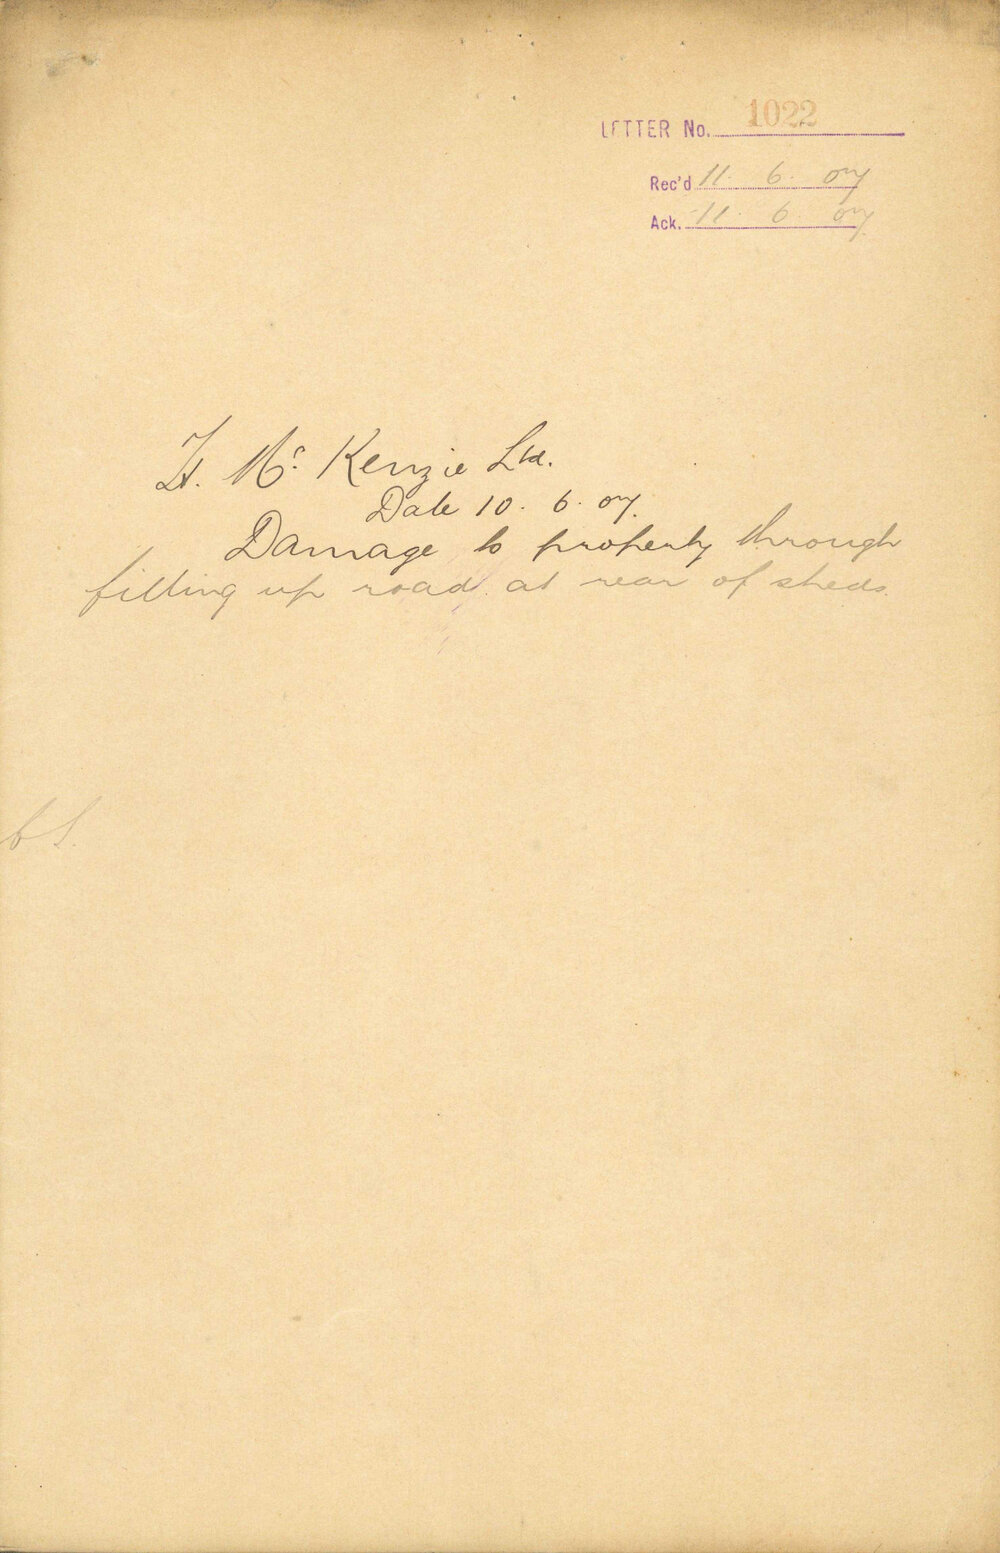 LETTER No. 1022
Rec'd 11. 6. 07
Ack. 11. 6. 07
H. Mc. Kenzie Ltd.
Date 10. 6. 07.
Damage to property through
filling up road at rear of sheds.